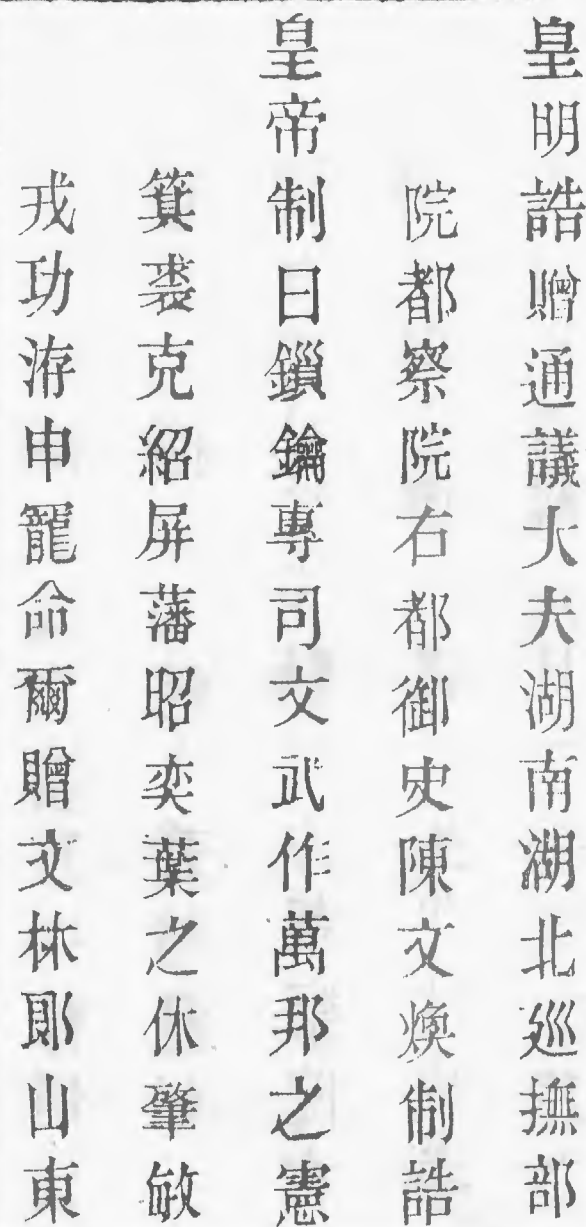 皇明誥贈通議大夫湖南湖北廵撫部
院都察院右都御史陳文煥制誥
皇帝制曰鎖鑰專司文武作萬邦之憲
箕裘克紹屏藩昭奕葉之休肇敏
戎功洊申寵命爾贈文林郎山東